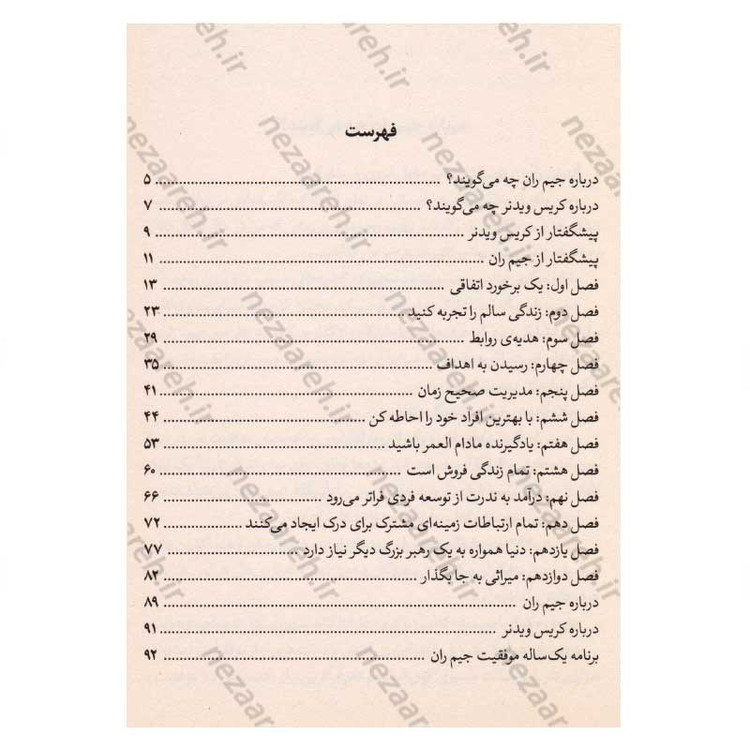 فهرست
درباره جیم ران چه می‌گویند؟ ۵
درباره کریس ویدنر چه می‌گویند؟ ۷
پیشگفتار از کریس ویدنر ۹
پیشگفتار از جیم ران ۱۱
فصل اول: یک برخورد اتفاقی ۱۳
فصل دوم: زندگی سالم را تجربه کنید ۲۳
فصل سوم: هدیه‌ی روابط ۲۹
فصل چهارم: رسیدن به اهداف ۳۵
فصل پنجم: مدیریت صحیح زمان ۴۱
فصل ششم: با بهترین افراد خود را احاطه کن ۴۴
فصل هفتم: یادگیرنده مادام العمر باشید ۵۳
فصل هشتم: تمام زندگی فروش است ۶۰
فصل نهم: درآمد به ندرت از توسعه فردی فراتر می‌رود ۶۶
فصل دهم: تمام ارتباطات زمینه‌ای مشترک برای درک ایجاد می‌کنند ۷۲
فصل یازدهم: دنیا همواره به یک رهبر بزرگ دیگر نیاز دارد ۷۷
فصل دوازدهم: میراثی به جا بگذار ۸۲
درباره جیم ران ۸۹
درباره کریس ویدنر ۹۱
برنامه یک‌ساله موفقیت جیم ران ۹۲
nezaareh.ir